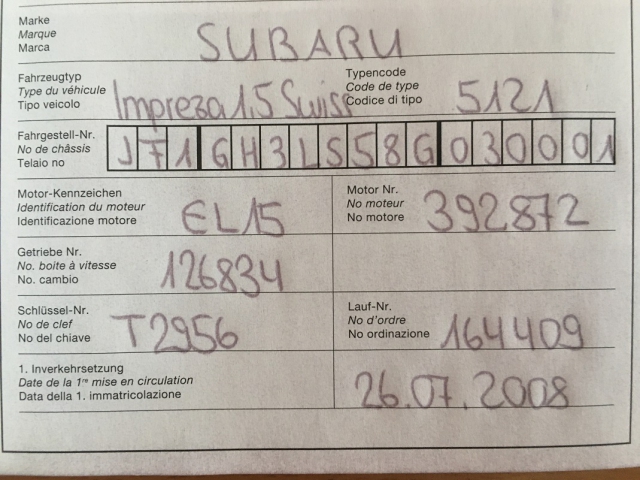 Marke
Marque
Marca
SUBARU
Fahrzeugtyp
Type du véhicule
Tipo veicolo
Impreza 1,5 Swiss
Typencode
Code de type
Codice di tipo
5121
Fahrgestell-Nr.
No de châssis
Telaio no
JF1GH3LS58G030001
Motor-Kennzeichen
Identification du moteur
Identificazione motore
EL15
Motor Nr.
No moteur
No motore
392872
Getriebe Nr.
No. boite à vitesse
No. cambio
126834
Schlüssel-Nr.
No de clef
No del chiave
T2956
Lauf-Nr.
No d'ordre
No ordinazione
164409
1. Inverkehrsetzung
Date de la 1re mise en circulation
Data della 1. immatricolazione
26.07.2008